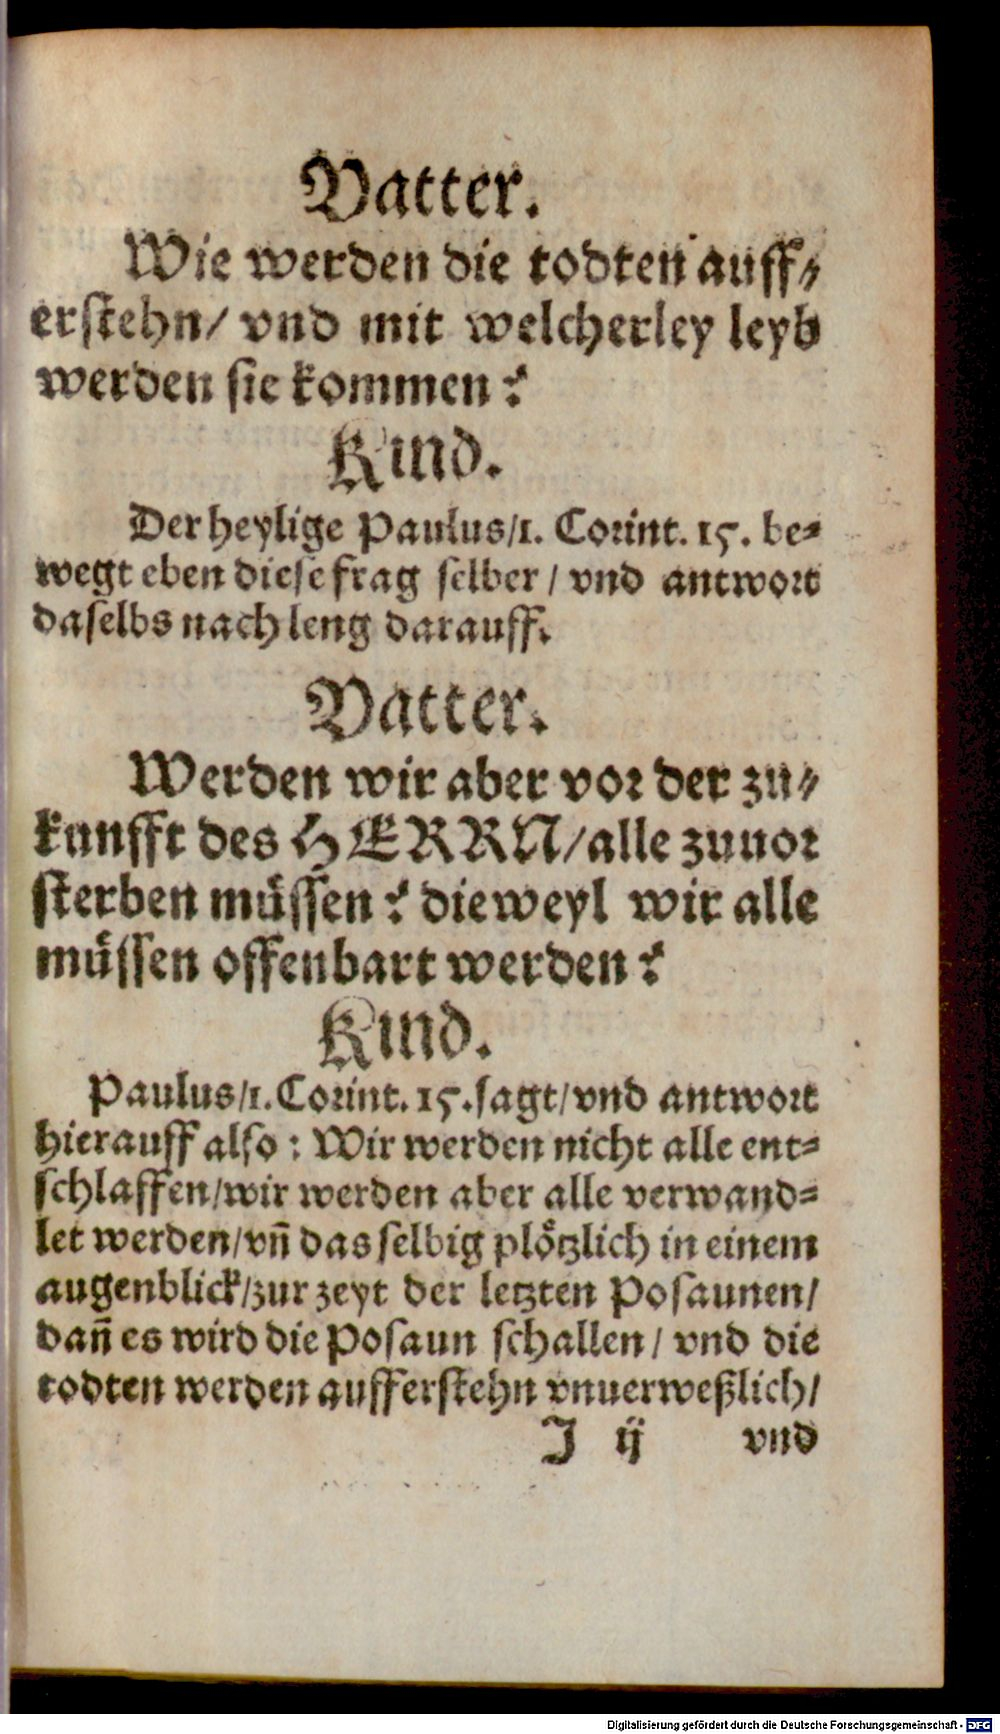 Vatter.
Wie werden die todten auff⸗
erſtehn/ vnd mit welcherley leyb
werden ſie kommen?
Kind.
Der heylige Paulus/1. Corint. 15. be⸗
wegt eben dieſe frag ſelber / vnd antwort
daſelbs nach leng darauff.
Vatter.
Werden wir aber vor der zu⸗
kunfft des HERRN/alle zuuor
ſterben muͤſſen? dieweyl wir alle
muͤſſen offenbart werden?
Kind.
Paulus/1. Corint. 15. ſagt/vnd antwort
hierauff alſo: Wir werden nicht alle ent⸗
ſchlaffen/wir werden aber alle verwand⸗
let werden/vn̄ das ſelbig ploͤtzlich in einem
augenblick/zur zeyt der letzten Poſaunen/
dan̄ es wird die Poſaun ſchallen / vnd die
todten werden aufferſtehn vnuerweßlich/
J ij vnd
Digitalisierung gefördert durch die Deutsche Forschungsgemeinschaft - DFG